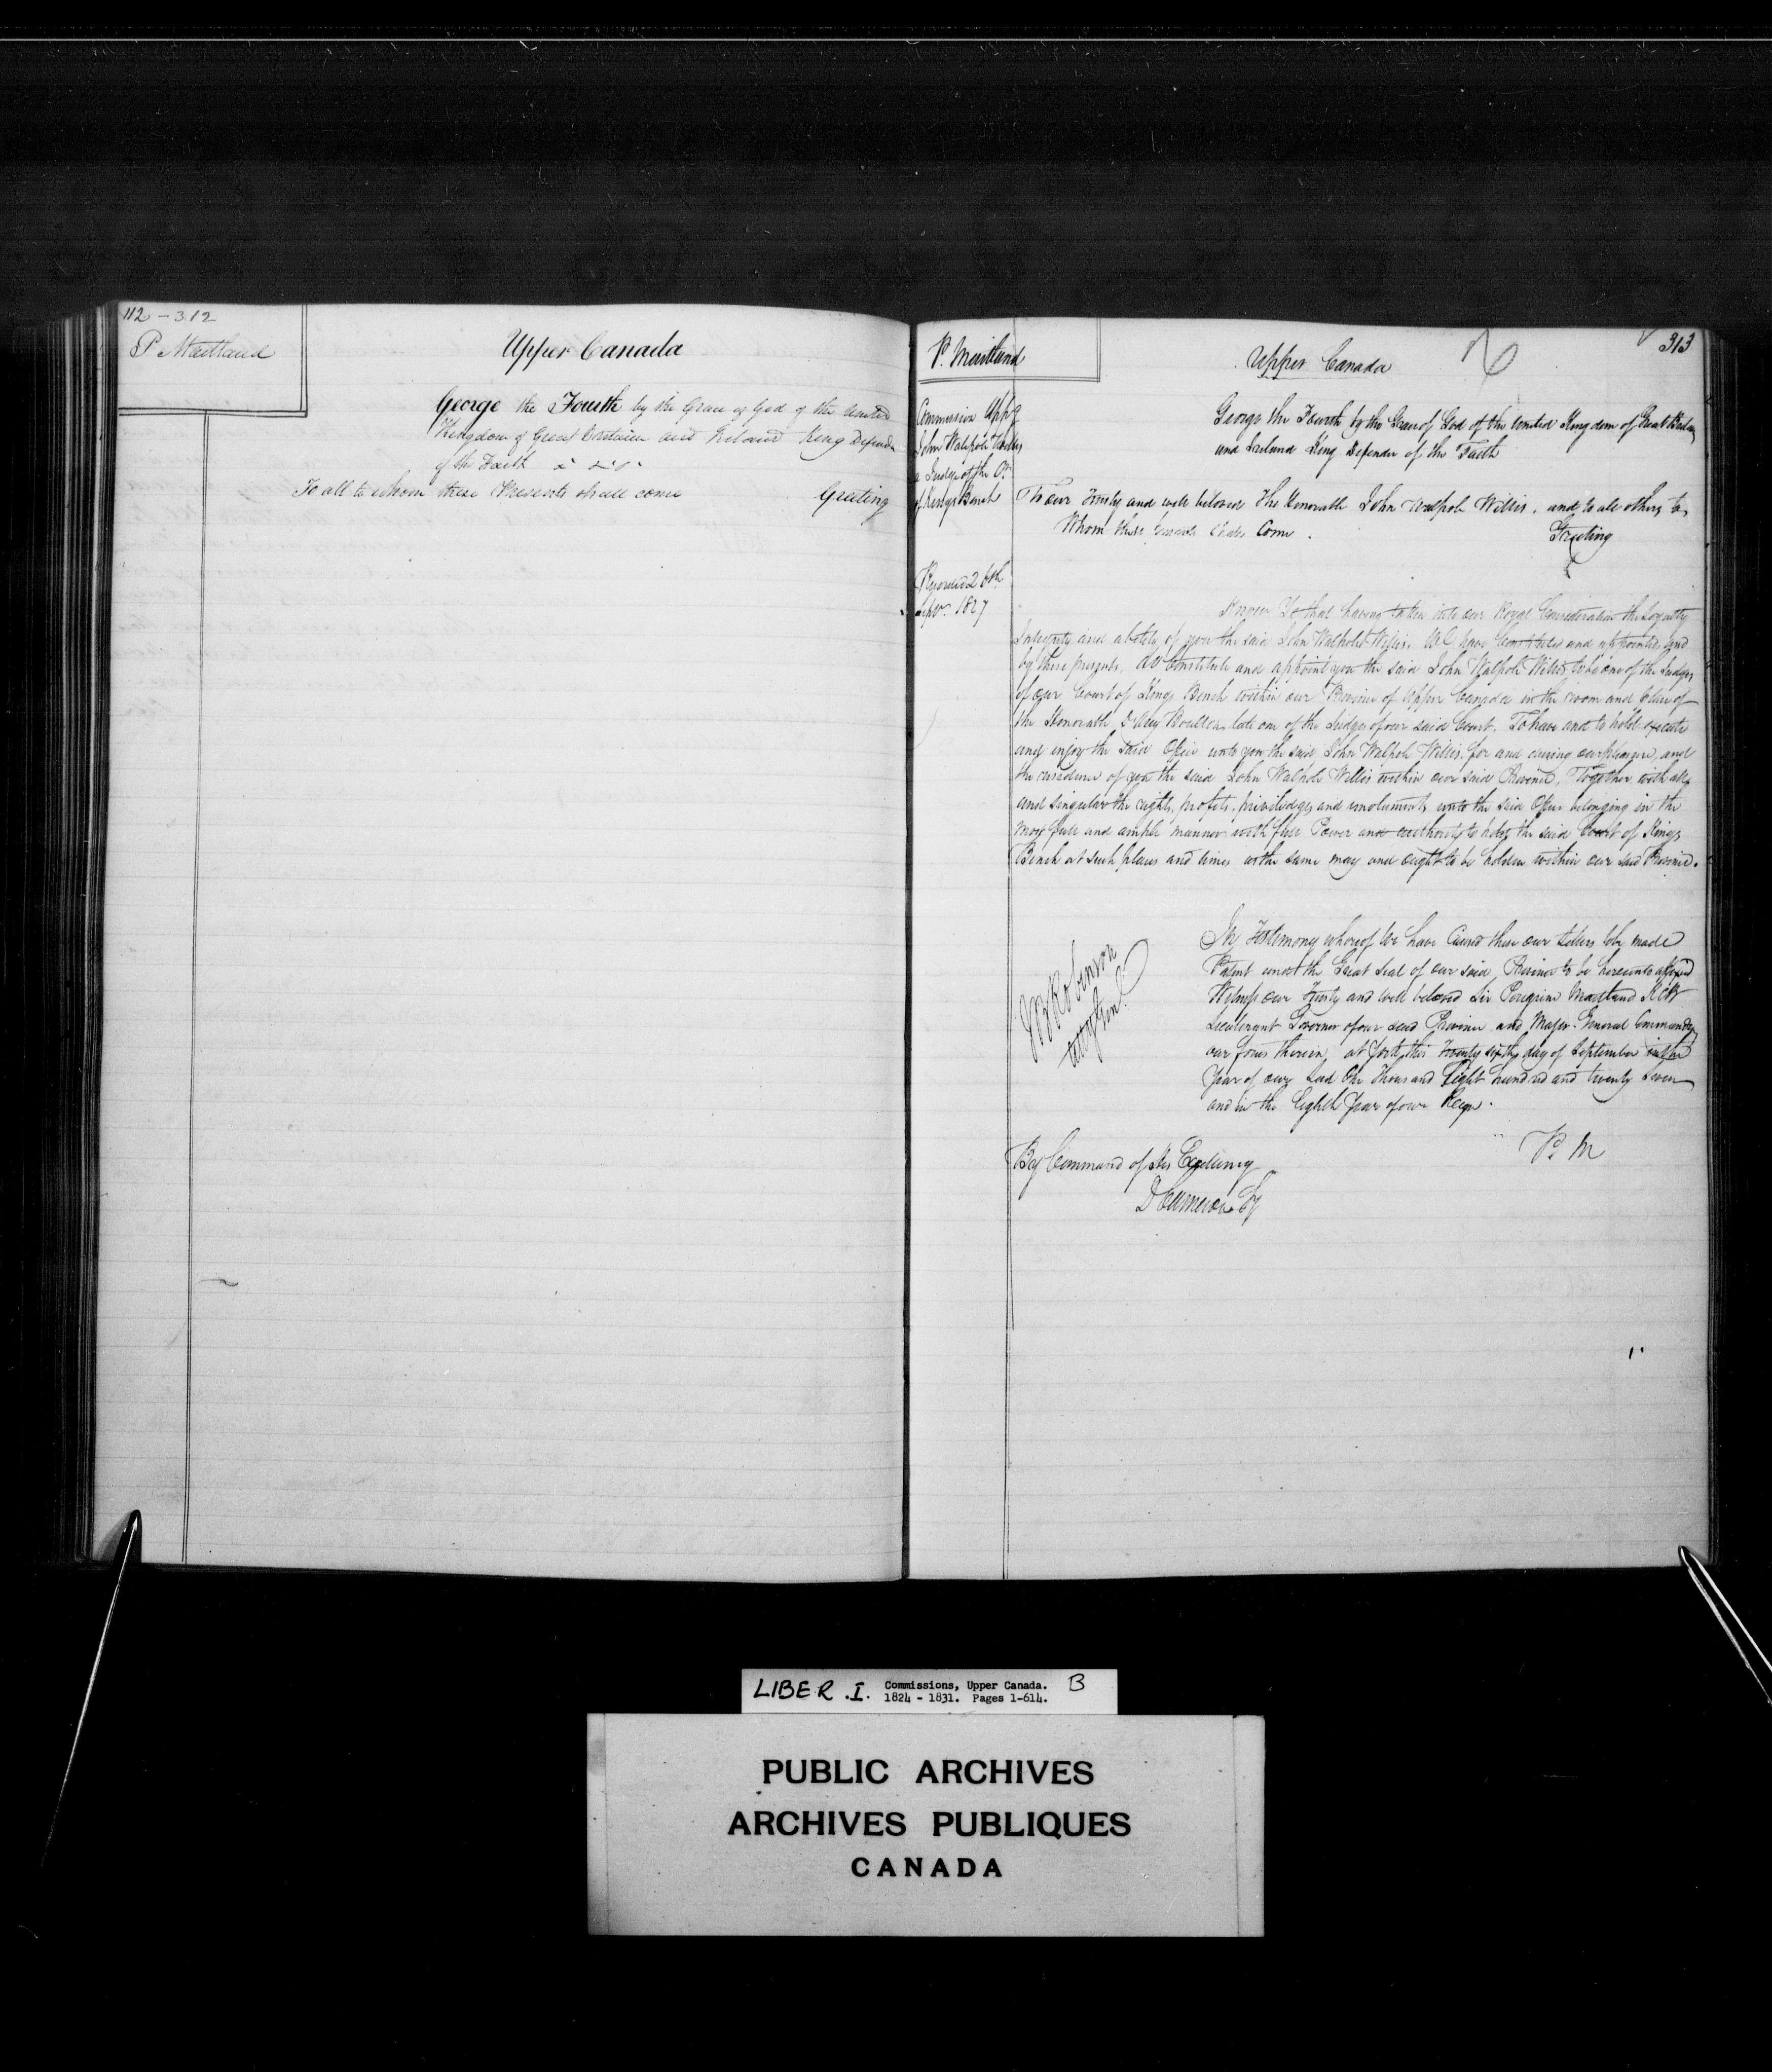 112 - 312
P Maitland
Upper Canada
George the Fourth by the Grace of God of the United
Kingdom of Great Britain and Ireland King Defender
of the Faith &c &c &c
To all to whom these Presents shall come Greeting
P. Maitland
Upper Canada
313
Commission Appg
John Walpole Willis
a Judge of the Ct.
of Kings Bench
Recorded 26th
Sepr. 1827
George the Fourth by the Grace of God of the United Kingdom of Great Britain
and Ireland King Defender of the Faith
To our Trusty and well beloved The Honorable John Walpole Willis, and to all others to
Whom these presents shall Come. Greeting
Know Ye that having taken into our Royal Consideration the Loyalty
Integrity and ability of you the said John Walpole Willis. We have Constituted and appointed and
by these presents, do Constitute and appoint you the said John Walpole Willis to be one of the Judges
of our Court of Kings Bench within our Province of Upper Canada in the room and place of
the Honorable D'Arcy Boulton late one of the Judges of our said Court. To have and to hold execute
and enjoy the said Office unto you the said John Walpole Willis for and during our pleasure, and
the residence of you the said John Walpole Willis within our said Province, Together with all
and singular the rights, profits, priviledges and emoluments unto the said Office belonging in the
most full and ample manner with full Power and authority to hold the said Court of Kings
Bench at such places and times as the same may and ought to be holden within our said Province.
In Testimony whereof We have Caused these our Letters to be made
Patent under the Great Seal of our said Province to be hereunto affixed
Witness our Trusty and well beloved Sir Peregrine Maitland KCB
Lieutenant Governor of our said Province and Major General Commanding
our forces therein, at York, this Twenty sixth day of September in the
Year of our Lord One Thousand Eight hundred and twenty Seven
and in the Eighth Year of our Reign.
Robinson
Atty Genl.
P. M
By Command of His Excellency
D Cameron Sy
LIBER .I. Commissions, Upper Canada. B
1824 - 1831. Pages 1-614.
PUBLIC ARCHIVES
ARCHIVES PUBLIQUES
CANADA